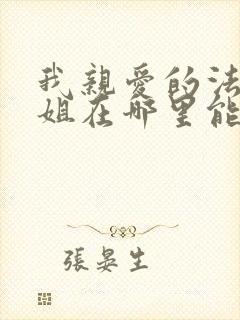 我親愛的法
姐在哪里能
張晏生